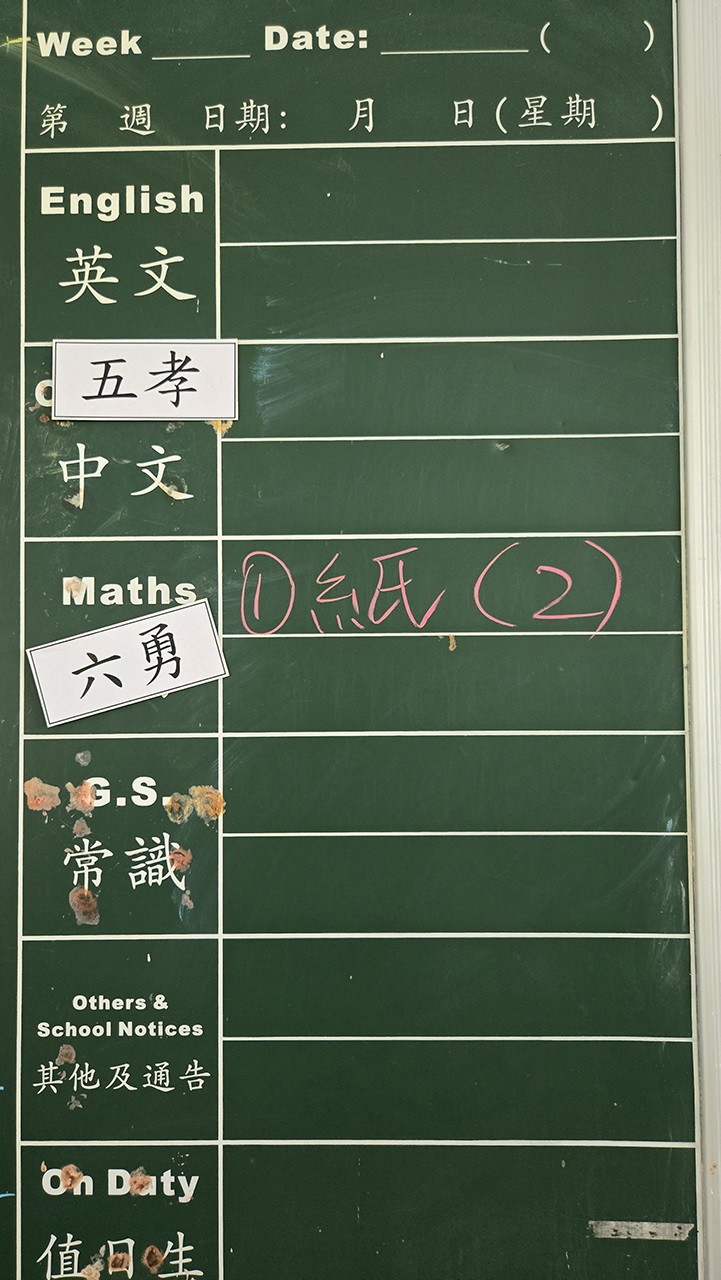 Week ______ Date: __________ ( )
第 週 日期: 月 日(星期 )
English
英文
五孝
中文
Maths
①紙(2)
六勇
G.S.
常識
Others &
School Notices
其他及通告
On Duty
值日生